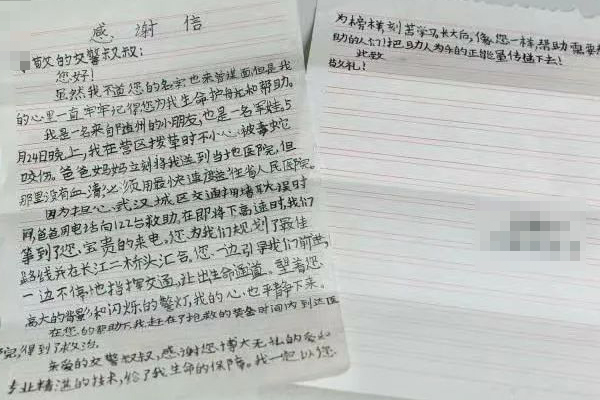 感谢信
敬的交警叔叔:
您好!
虽然我不道您的名字也来曾谋面但是我
的心里一直牢牢记得您为我生命护航和帮助。
我是一名来自随州的小朋友,也是一名军娃,5
月24日晚上,我在营区拔草时不小心被毒蛇
咬伤。爸爸妈妈立刻将我送到当地医院,但
那里没有血清,必须用最快速度送往省人民医院。
因为担心武汉城区交通拥堵耽误时
间,爸爸电话向122台救助,在即将下高速时,我们
等到了您宝贵的来电。您为我们规划了最佳
路线并在长江二桥头汇合,您一边引导我们前进,
一边不停地指挥交通,让出生命通道。望着您
高大的背影和闪烁的警灯,我的心也平静下来。
在您的帮助下我赶在了抢救的黄金时间内到达医
院,得到了救治。
亲爱的交警叔叔,感谢您博大无私的爱和
专业精湛的技术,给了我生命的保障。我一定以您
为榜样刻苦学习,长大后,像您一样,帮助需要帮
助的人们!把助人为乐的正能量传播下去!
此致
敬礼!